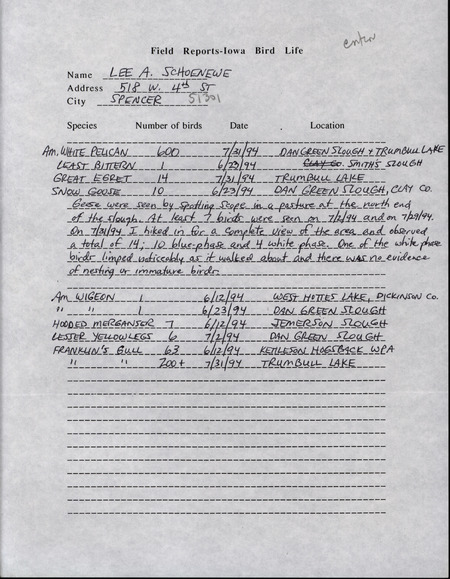 enter
Field Reports-Iowa Bird Life
Name LEE A. SCHOENEWE
Address 518 W. 4th ST
City SPENCER 51301
Species Number of birds Date Location
AM. WHITE PELICAN 600 7/31/94 DAN GREEN SLOUGH + TRUMBULL LAKE
LEAST BITTERN 1 6/23/94 CLAY CO. SMITHS SLOUGH
GREAT EGRET 14 7/31/94 TRUMBULL LAKE
SNOW GOOSE 10 6/23/94 DAN GREEN SLOUGH, CLAY CO.
Geese were seen by spotting scope in a pasture at the north end
of the slough. At least 7 birds were seen on 7/2/94 and on 7/29/94.
On 7/31/94 I hiked in for a complete view of the area and observed
a total of 14; 10 blue-phase and 4 white phase. One of the white phase
birds limped noticeably as it walked about and there was no evidence
of nesting or immature birds.
AM WIGEON 1 6/12/94 WEST HOTTES LAKE, DICKINSON CO.
" " 1 6/23/94 DAN GREEN SLOUGH
HOODED MERGANSER 7 6/12/94 JEMERSON SLOUGH
LESSER YELLOWLEGS 6 7/2/94 DAN GREEN SLOUGH
FRANKLIN'S GULL 63 6/12/94 KETTLESON HOGSBACK WPA
" " 200+ 7/31/94 TRUMBULL LAKE